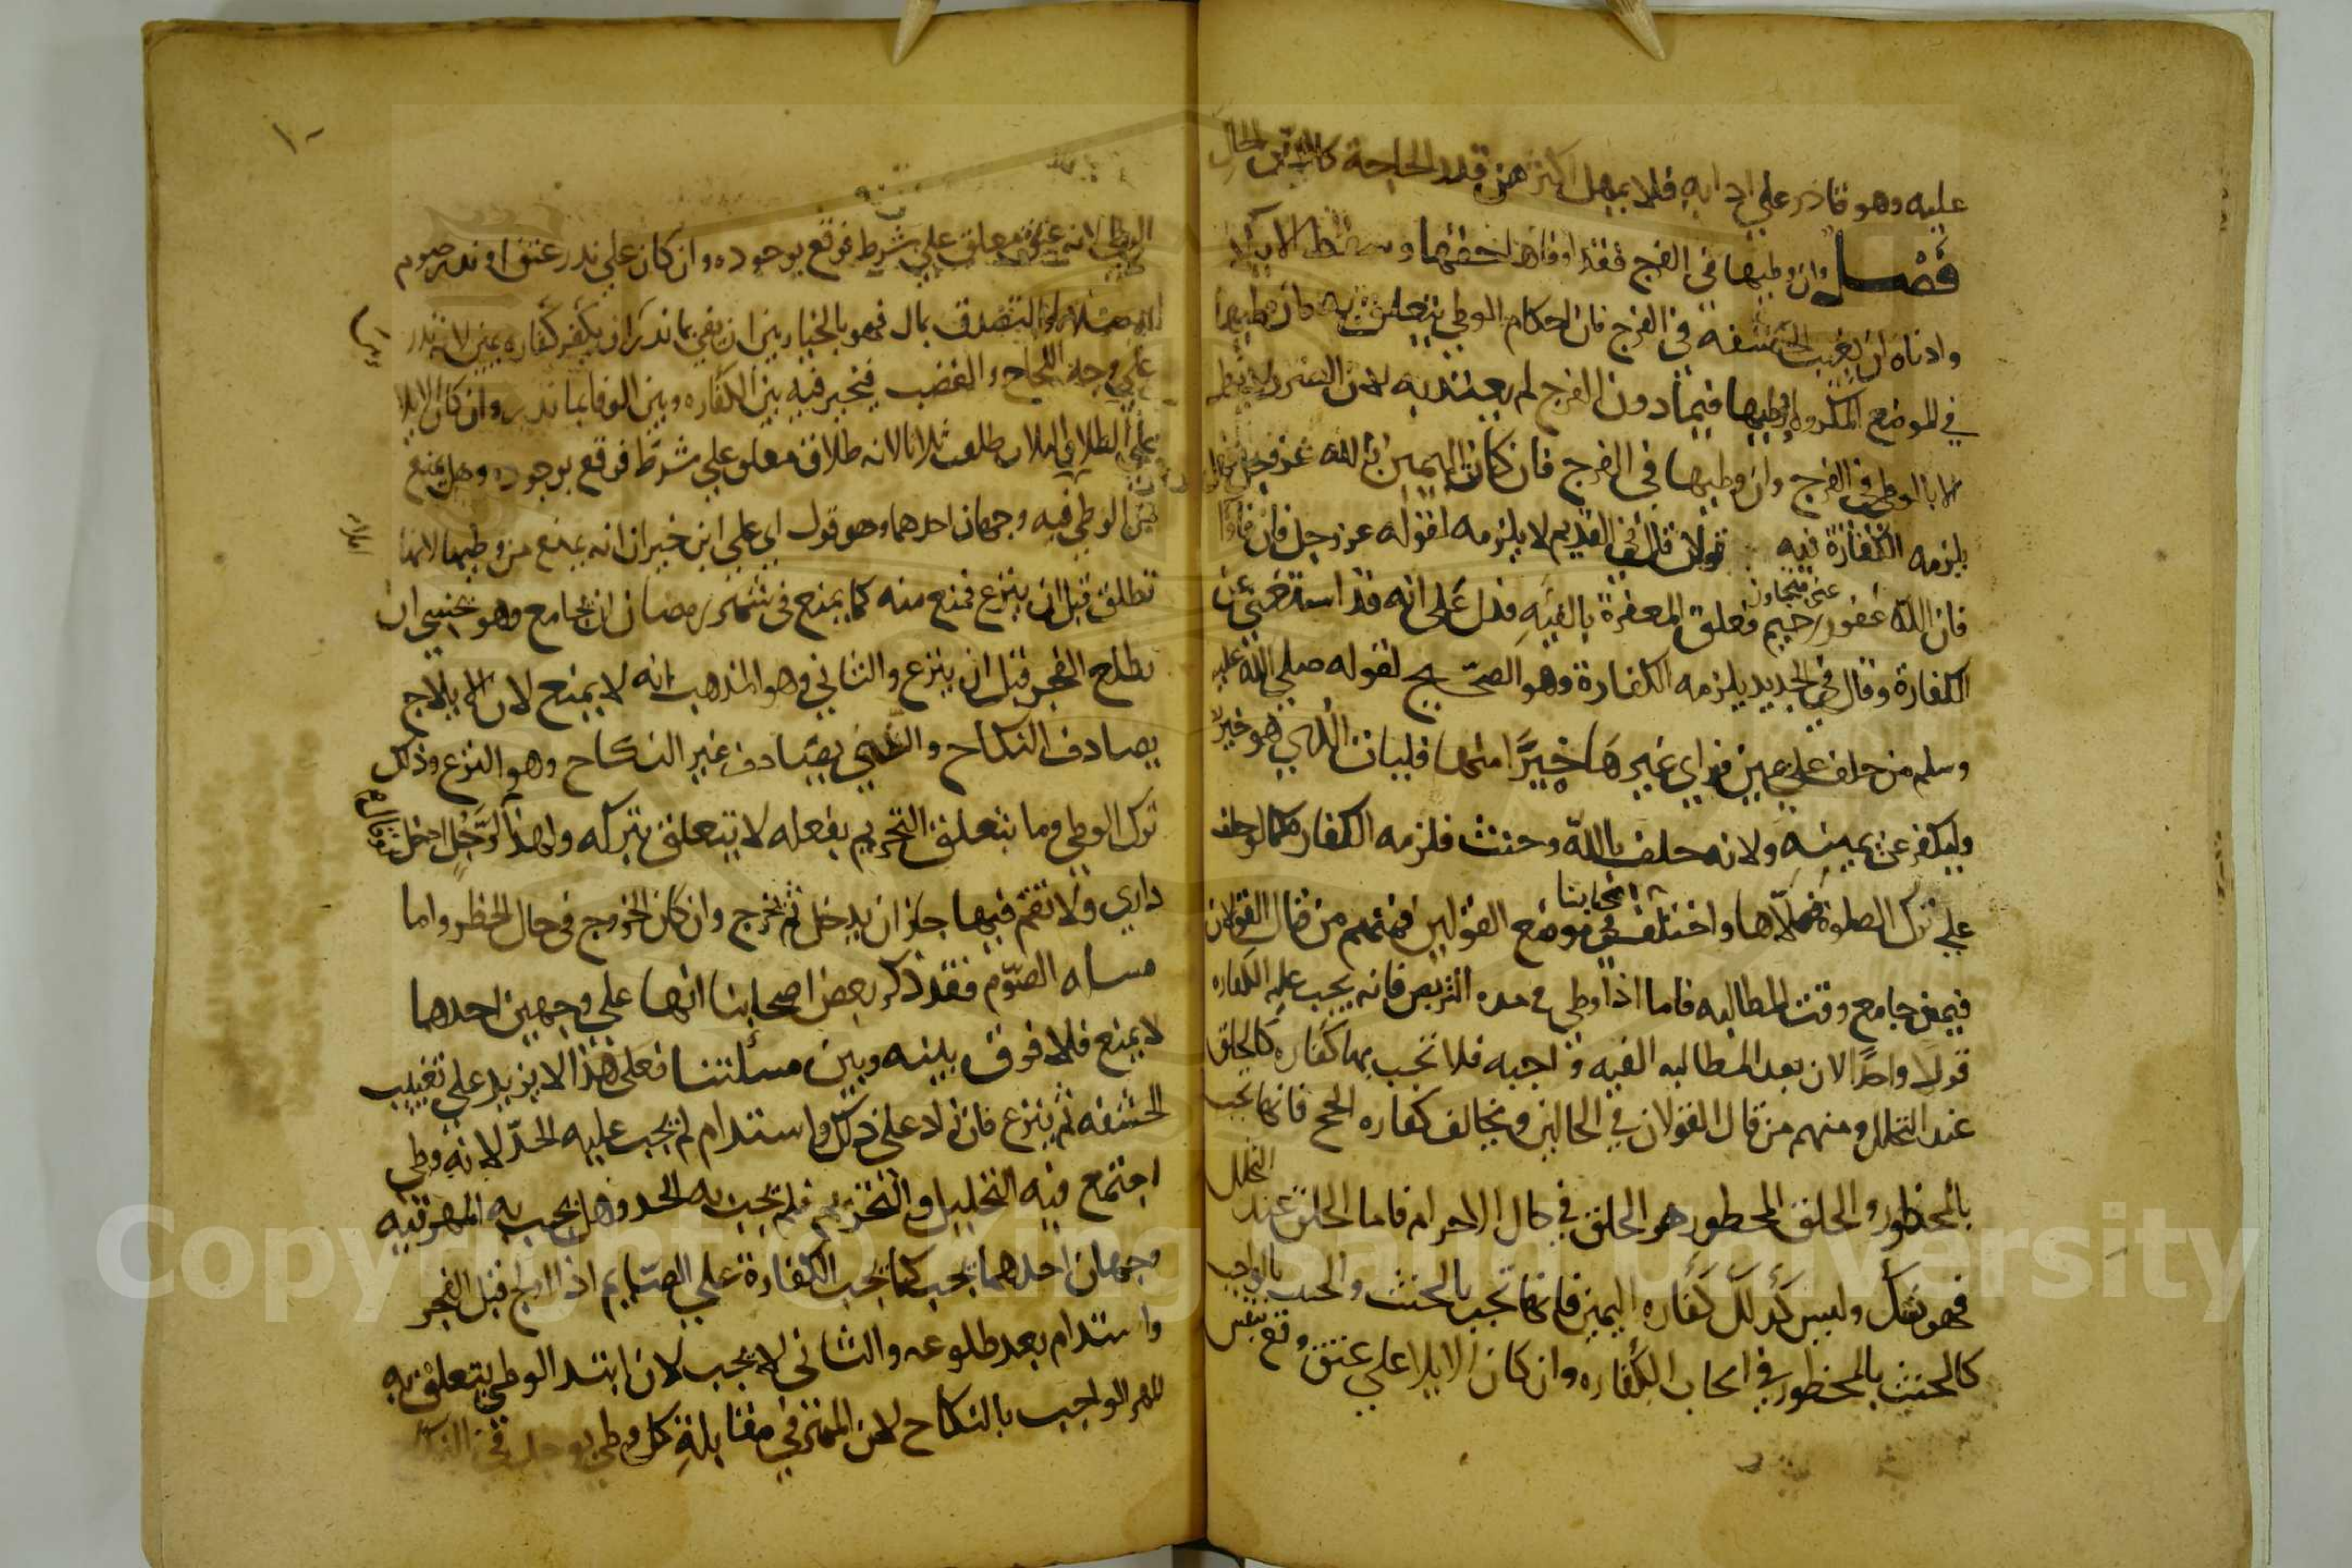 عليه وهو قادر علي ادايه فلا يمهل اكثر من قدر الحاجة كالدين الحال
فصل وان وطيها في الفرج فقد اوفاها حقها وسقط الايلا
وادناه ان تغيب الحشفه في الفرج فان احكام الوطي تتعلق به فان وطيها
في الموضع المكروه او وطيها فيما دون الفرج لم يعتد به لان الضرر لا يزول
الا بالوطي في الفرج وان وطيها في الفرج فان كانت اليمين بالله عز وجل فهل
يلزمه الكفارة فيه قولان قال في القديم لا يلزمه لقوله عز وجل فان فاوا
فان الله غفور رحيم فعلق المغفرة بالفيه فدل علي انه قد استغني عن
الكفارة وقال في الجديد يلزمه الكفارة وهو الصحيح لقوله صلي الله عليه
وسلم من حلف علي يمين فراي غيرها خيرا منها فليات الذي هو خير
وليكفر عن يمينه ولانه حلف بالله وحنث فلزمه الكفاره كما لو حلف
علي ترك الصلوة فصلاها واختلف اصحابنا في موضع القولين فمنهم من قال القولان
فيمن جامع وقت المطالبه فاما اذا وطي في مده التربص فانه يجب عليه الكفاره
قولا واحدا لان بعد المطالبه الفيه واجبه فلا تجب بها كفاره كالحلق
عند التحلل ومنهم من قال القولان في الحالين ويخالف كفاره الحج فانها تجب
بالمحظور والحلق المحظور هو الحلق في حال الاحرام فاما الحلق عند التحلل
فهو نسك وليس كذلك كفاره اليمين فانها تجب بالحنث والحنث بالواجب
كالحنث بالمحظور في ايجاب الكفاره وان كان الايلا علي عتق وقع بنفس
الوطي لانه عتق معلق علي شرط فوقع بوجوده وان كان علي نذر عتق او نذر صوم
او صلاه او التصدق بمال فهو بالخيار بين ان يفي بما نذر او ان يكفر كفاره يمين لانه نذر
علي وجه اللجاج والغضب فيخير فيه بين الكفاره وبين الوفا بما نذر وان كان الايلا
علي الطلاق الثلاث طلقت ثلاثا لانه طلاق معلق علي شرط فوقع بوجوده وهل يمنع
من الوطي فيه وجهان احدهما وهو قول ابي علي ابن خيران انه يمنع من وطيها لانها
تطلق قبل ان ينزع فمنع منه كما يمنع في شهر رمضان ان يجامع وهو يخشي ان
يطلع الفجر قبل ان ينزع والثاني وهو المذهب انه لا يمنع لان الايلاج
يصادف النكاح والذي يصادف غير النكاح وهو النزع وذلك
ترك الوطي وما يتعلق التحريم بفعله لا يتعلق بتركه ولهذا لو قال لرجل ادخل
داري ولا تقم فيها جاز ان يدخل ثم يخرج وان كان الخروج في حال الحظر واما
مساله الصوم فقد ذكر بعض اصحابنا انها علي وجهين احدهما
لا يمنع فلا فرق بينه وبين مسئلتنا فعلي هذا لا يزيد علي تغييب
الحشفه ثم ينزع فان زاد علي ذلك واستدام لم يجب عليه الحد لانه وطي
اجتمع فيه التحليل والتحريم فلم يجب به الحد وهل يجب به المهر فيه
وجهان احدهما يجب كما تجب الكفارة علي الصايم اذا اولج قبل الفجر
واستدام بعد طلوعه والثاني لا يجب لان ابتدا الوطي يتعلق به
المهر الواجب بالنكاح لان المهر في مقابلة كل وطي يوجد في النكاح